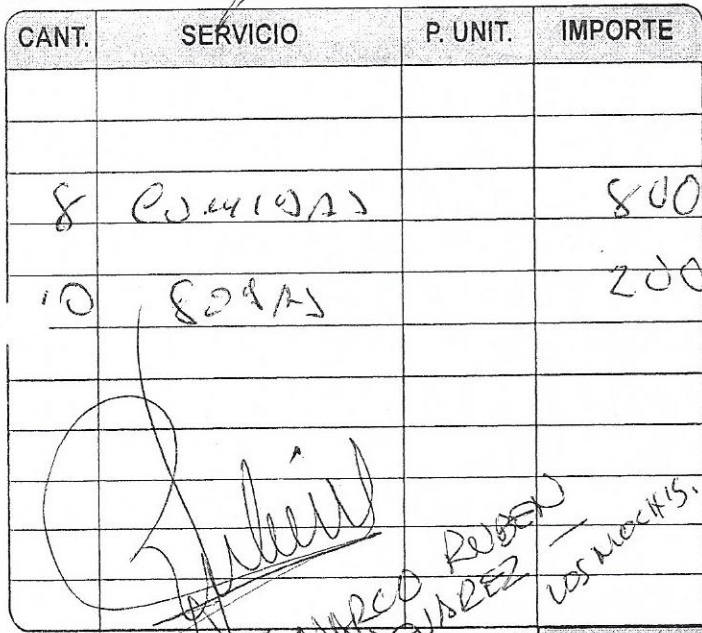 CANT. SERVICIO P. UNIT. IMPORTE
8 COMIDAS 800
10 SODAS 200
MARCO RUBEN
SUAREZ —
LOS MOCHIS.